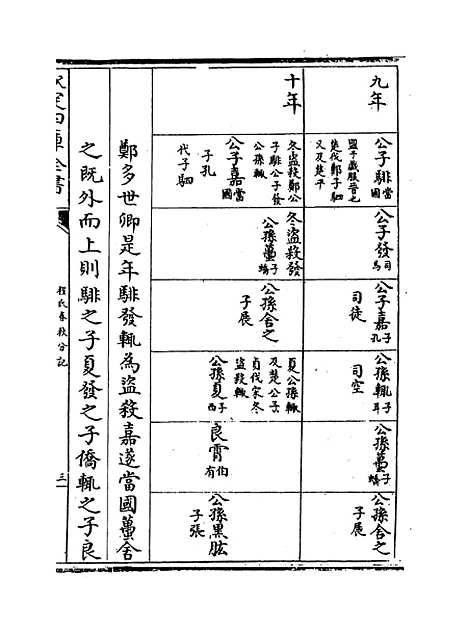 九年
公子騑當
國
盟于戲服晉也
楚伐鄭子駟
又及楚平
公子發司
馬
公子嘉子
孔
司徒
公孫輒子
耳
司空
公孫蠆子
蟜
公孫舍之
子展
十年
冬盜殺鄭公
子騑公子發
公孫輒
公子嘉當
國
子孔
代子駟
冬盜殺發
公孫蠆子
蟜
公孫舍之
子展
夏公孫輒
及楚公子
貞伐宋冬
盜殺輒
公孫夏子
西
良霄伯
有
公孫黑肱
子張
鄭多世卿是年騑發輒為盜殺嘉遂當國蠆舍
之既外而上則騑之子夏發之子僑輒之子良
欽定四庫全書
程氏春秋分記
三